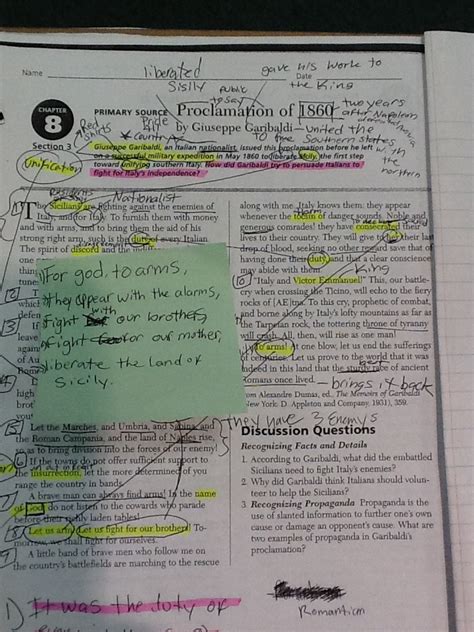 gave his work to
Name liberated Date the King
Sisily public
to say
CHAPTER 8
PRIMARY SOURCE Proclamation of 1860
two years
Red shirts
Pride
* country
by Giuseppe Garibaldi
united the
Southern states
with the
northern
Section 3
Unification
Giuseppe Garibaldi, an Italian nationalist, issued this proclamation before he left
on a successful military expedition in May 1860 to liberate Sicily, the first step
toward unifying southern Italy. How did Garibaldi try to persuade Italians to
fight for Italy's independence?
Residents Nationalist
The Sicilians are fighting against the enemies of
Italy, and for Italy. To furnish them with money
and with arms, and to bring them the aid of his
strong right arm, such is the duty of every Italian.
The spirit of discord and the
For god, to arms,
They appear with the alarms,
fight with our brothers,
fight for our mother,
liberate the land of
Sicily.
Let the Marches, and Umbria, and Sabina, and
the Roman Campania, and the land of Naples rise,
so as to bring division into the forces of our enemy!
If the towns do not offer sufficient support to
the insurrection, let the more determined of you
range the country in bands.
A brave man can always find arms! In the name
of God, do not listen to the cowards who parade
before their richly laden tables!
Let us arm! Let us fight for our brothers! To-
morrow, we shall fight for ourselves.
A little band of brave men who follow me on
the country's battlefields are marching to the rescue
1) It was the duty of
along with me. Italy knows them: they appear
whenever the tocsin of danger sounds. Noble and
generous comrades! they have consecrated their
lives to their country. They will give to her their last
drop of blood, seeking no other reward save that of
having done their duty, and that a clear conscience
may abide with them.
King
"Italy and Victor Emmanuel!" This, our battle-
cry when crossing the Ticino, will echo to the fiery
rocks of [AE]tna. To this cry, prophetic of combat,
and borne along by Italy's lofty mountains as far as
the Tarpeian rock, the tottering throne of tyranny
will crash. All, then, will rise as one man!
To arms! at one blow, let us end the sufferings
of centuries. Let us prove to the world that it was
indeed in this land that the sturdy race of ancient
Romans once lived.
brings it back
from Alexandre Dumas, ed., The Memoirs of Garibaldi
(New York: D. Appleton and Company, 1931), 359.
they have 3 Enemys
Discussion Questions
Recognizing Facts and Details
1. According to Garibaldi, what did the embattled
Sicilians need to fight Italy's enemies?
2. Why did Garibaldi think Italians should volun-
teer to help the Sicilians?
3. Recognizing Propaganda Propaganda is the
use of slanted information to further one's own
cause or damage an opponent's cause. What are
two examples of propaganda in Garibaldi's
proclamation?
Romantism